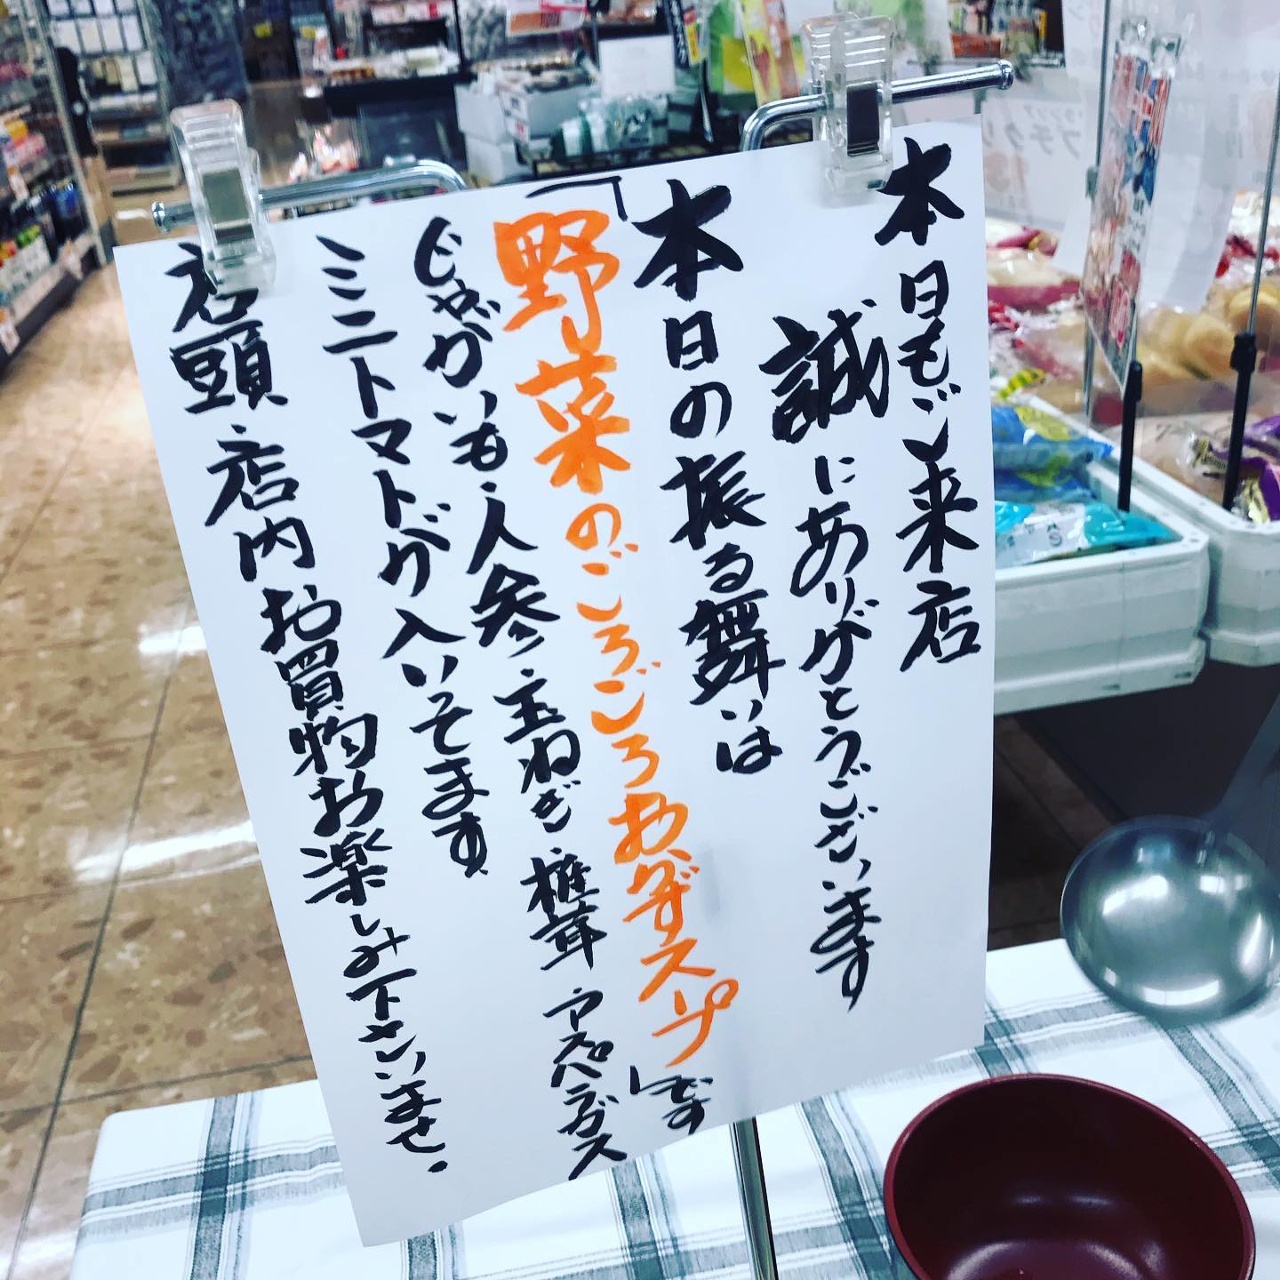 本日もご来店
誠にありがとうございます
本日の振る舞いは
「野菜のごろごろおかずスープ」です
じゃがいも・人参・玉ねぎ・椎茸 アスパラガス
ミニトマトが入いってます
店頭・店内お買物お楽しみ下さいませ。